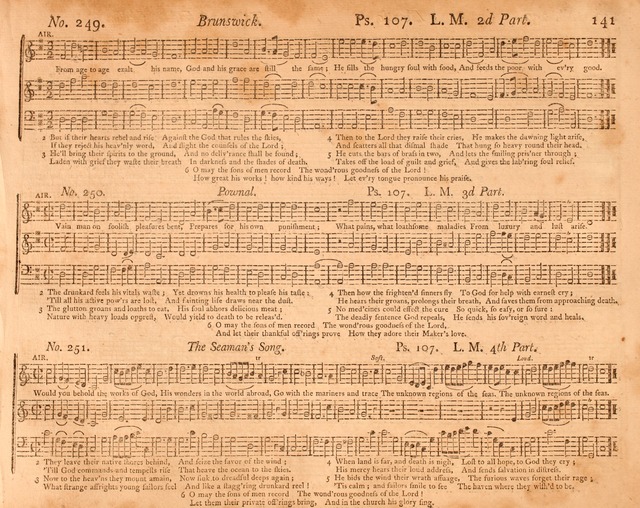 No. 249. Brunswick. Ps. 107. L. M. 2d Part. 141
AIR.
From age to age exalt his name, God and his grace are still the same; He fills the hungry soul with food, And feeds the poor with ev'ry good.
2 But if their hearts rebel and rise Against the God that rules the skies,
If they reject his heav'nly word, And slight the counsels of the Lord;
3 He'll bring their spirits to the ground, And no deliv'rance shall be found;
Laden with grief they waste their breath In darkness and the shades of death.
4 Then to the Lord they raise their cries, He makes the dawning light arise,
And scatters all that dismal shade That hung so heavy round their head.
5 He cuts the bars of brass in two, And lets the smiling pris'ner through;
Takes off the load of guilt and grief, And gives the lab'ring soul relief.
6 O may the sons of men record The wond'rous goodness of the Lord!
How great his works! how kind his ways! Let ev'ry tongue pronounce his praise.
No. 250. Pownal. Ps. 107. L. M. 3d Part.
AIR.
Vain man on foolish pleasures bent, Prepares for his own punishment; What pains, what loathsome maladies From luxury and lust arise.
2 The drunkard feels his vitals waste; Yet drowns his health to please his taste;
'Till all his active pow'rs are lost, And fainting life draws near the dust.
3 The glutton groans and loaths to eat, His soul abhors delicious meat;
Nature with heavy loads opprest, Would yield to death to be releas'd.
4 Then how the frighten'd sinners fly To God for help with earnest cry;
He hears their groans, prolongs their breath, And saves them from approaching death.
5 No med'cines could effect the cure So quick, so easy, or so sure;
The deadly sentence God repeals, He sends his sov'reign word and heals.
6 O may the sons of men record The wond'rous goodness of the Lord,
And let their thankful off'rings prove How they adore their Maker's love.
No. 251. The Seaman's Song. Ps. 107. L. M. 4th Part.
AIR. tr Soft. Loud. tr
Would you behold the works of God, His wonders in the world abroad, Go with the mariners and trace The unknown regions of the seas. The unknown regions of the seas.
2 They leave their native shores behind, And seize the favor of the wind;
Till God commands and tempests rise That heave the ocean to the skies.
3 Now to the heav'ns they mount amain, Now sink to dreadful deeps again;
What strange affrights young sailors feel And like a stagg'ring drunkard reel!
4 When land is far, and death is nigh, Lost to all hope, to God they cry;
His mercy hears their loud address, And sends salvation in distress.
5 He bids the wind their wrath assuage, The furious waves forget their rage;
'Tis calm; and sailors smile to see The haven where they wish'd to be.
6 O may the sons of men record The wond'rous goodness of the Lord!
Let them their private off'rings bring, And in the church his glory sing.